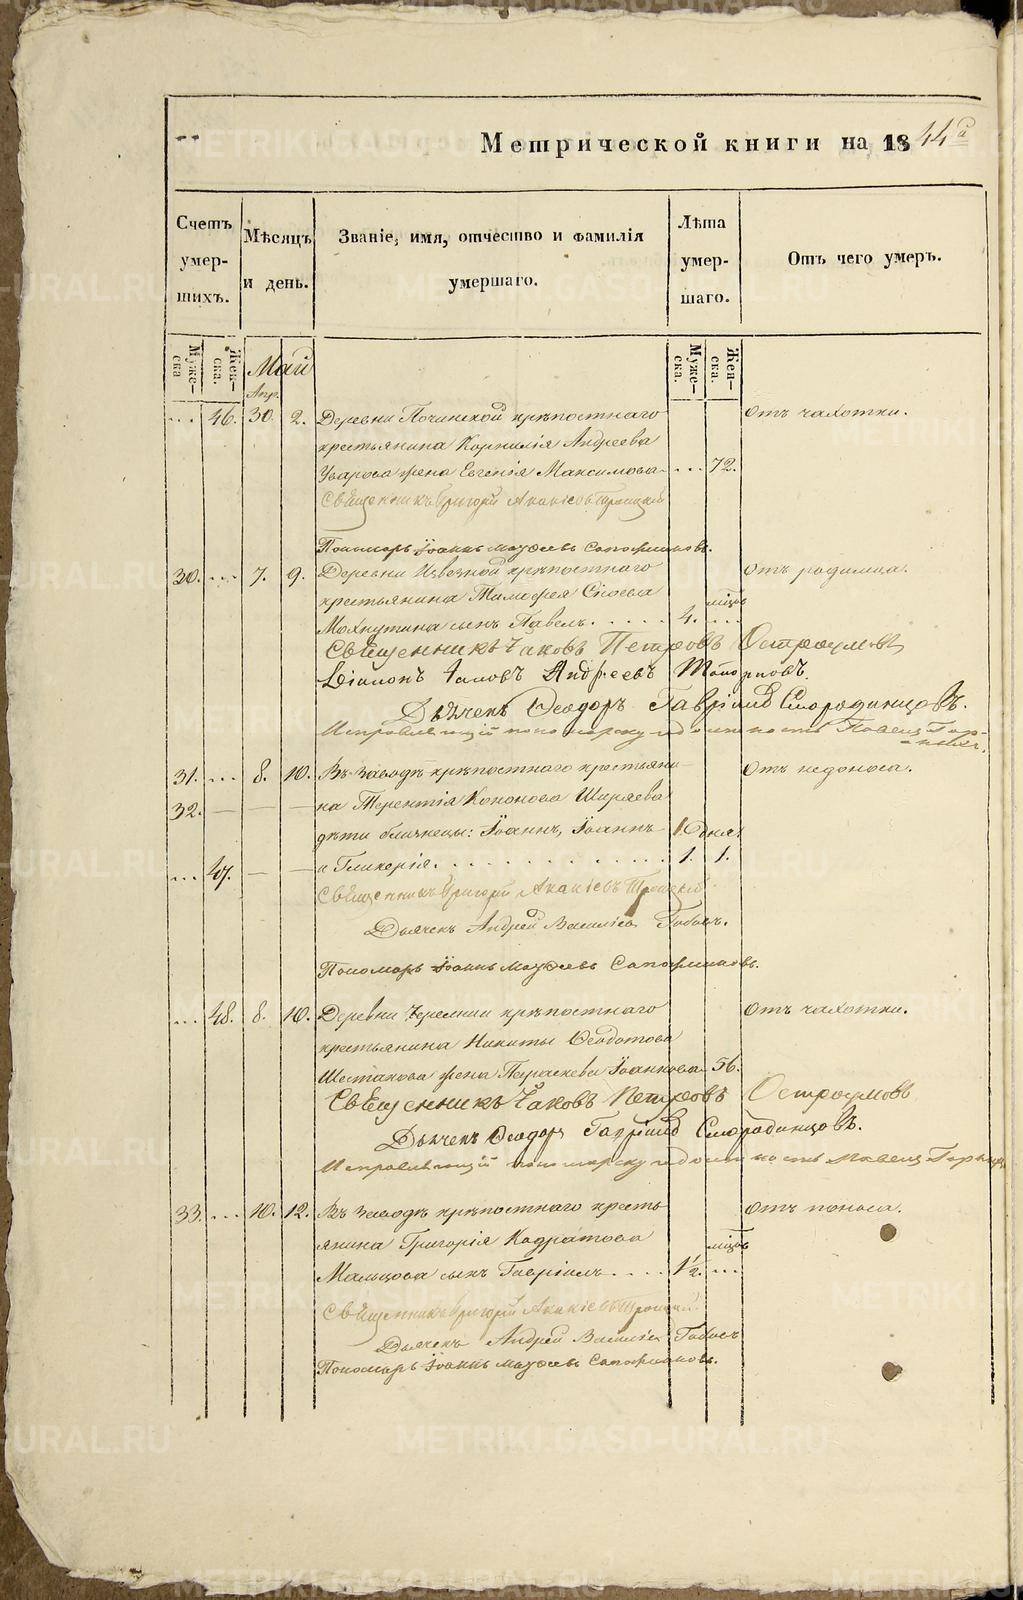 Метрической книги на 1844 й
Счетъ умершихъ.
Мѣсяцъ и день.
Званіе, имя, отчество и фамилія умершаго.
Лѣта умершаго.
Отъ чего умеръ.
Муже-ска
Жен-ска.
Май
Апр.
Муже-ска.
Жен-ска.
... 46. 30. 2. Деревни Починской крѣпостнаго отъ чахотки.
крестьянина Корнилія Андреева
Уварова жена Евгенія Максимова ... 72.
Священникъ Григорій Ананіевъ Троицкій
Пономарь Іоаннъ Матѳеевъ Сапожниковъ.
30. ... 7. 9. Деревни Извезной крѣпостнаго отъ родимца.
крестьянина Тимоѳея Сысоева
мѣцовъ
Мохнутина сынъ Павелъ. . . . . . 4. ...
Священникъ Іаковъ Петровъ Остроумовъ
Діаконъ Іаковъ Андреевъ Топорковъ.
Дьячекъ Ѳеодоръ Гавріиловъ Смородинцовъ.
Исправляющій пономарскую должность Павелъ
31. ... 8. 10. Въ заводѣ крѣпостнаго крестьяни- отъ недоноса.
32. — — — на Терентія Кононова Ширяева
дѣти близнецы: Іоаннъ, Іоаннъ 1. дня.
... 47. — — и Гликерія. . . . . . . . . . . . . 1. 1.
Священникъ Григорій Ананіевъ Троицкій
Дьячекъ Андрей Василіевъ
Пономарь Іоаннъ Матѳеевъ Сапожниковъ.
... 48. 8. 10. Деревни Черемши крѣпостнаго отъ чахотки.
крестьянина Никиты Ѳеодотова
Шестакова жена Параскева Іоаннова 56.
Священникъ Іаковъ Петровъ Остроумовъ
Дьячекъ Ѳеодоръ Гавріиловъ Смородинцовъ.
Исправляющій пономарскую должность Павелъ
33. ... 10. 12. Въ заводѣ крѣпостнаго кресть- отъ поноса.
янина Григорія Кодратова
мѣцовъ
Мальцова сынъ Гавріилъ. . . . 1½. ...
Священникъ Григорій Ананіевъ Троицкій
Дьячекъ Андрей Василіевъ
Пономарь Іоаннъ Матѳеевъ Сапожниковъ.
METRIKI.GASO-URAL.RU